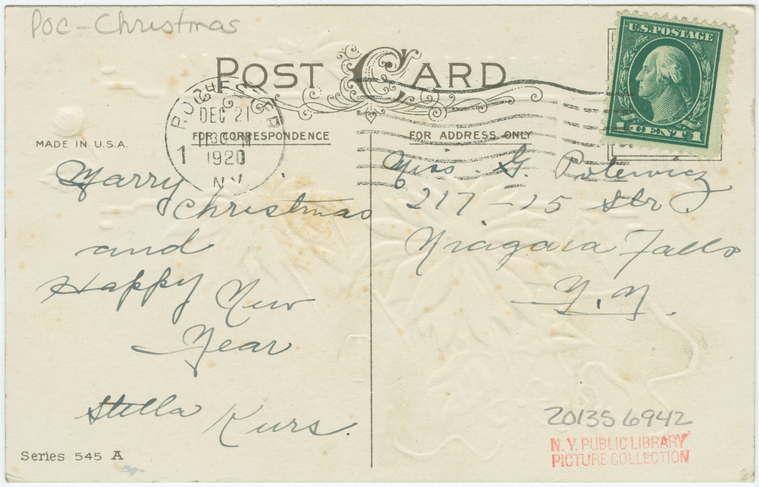 Poc-Christmas
POST CARD
U.S. POSTAGE
1 CENT 1
ROCHESTER
DEC 21
1130
1
1920
N.Y.
MADE IN U.S.A.
FOR CORRESPONDENCE
FOR ADDRESS ONLY
Marry
Christmas
and
Happy New
Year
Stella Kurs.
Miss. G. Polewicz
217-15 Str
Niagara Falls
N.Y.
Series 545 A
201356942
N.Y. PUBLIC LIBRARY
PICTURE COLLECTION